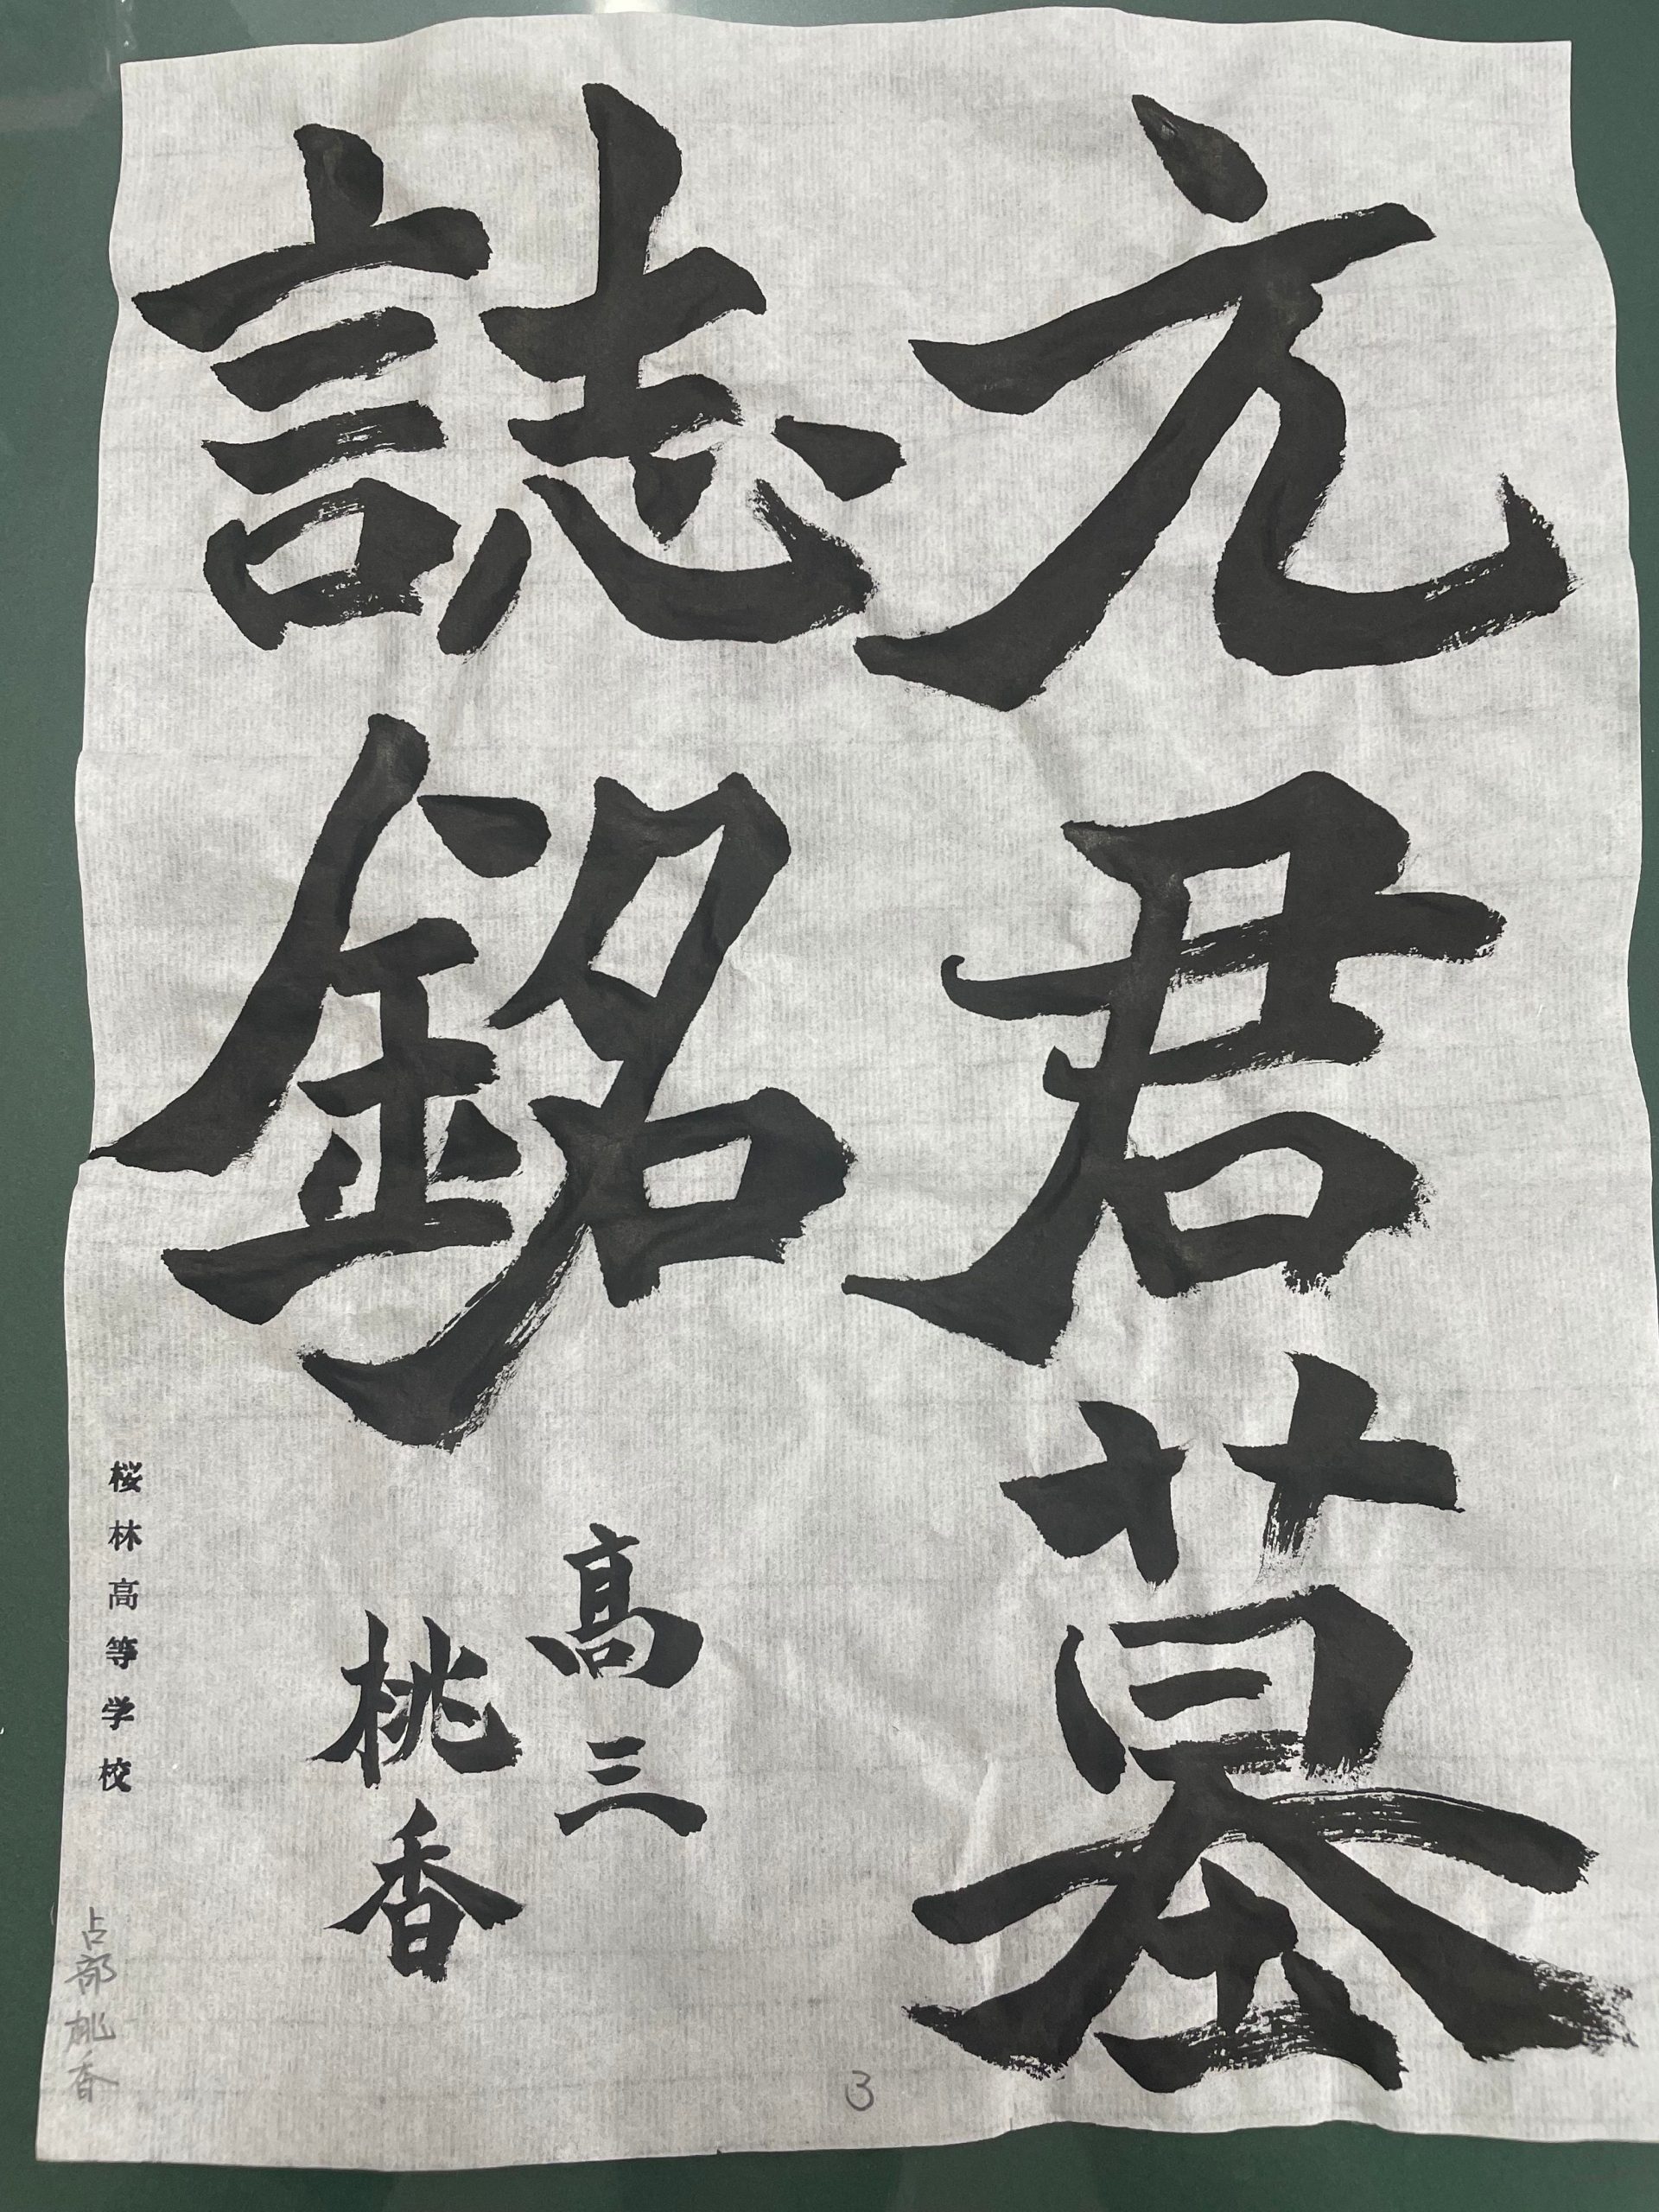 元君墓
誌銘
高三
桃香
桜林高等学校
占部桃香
3